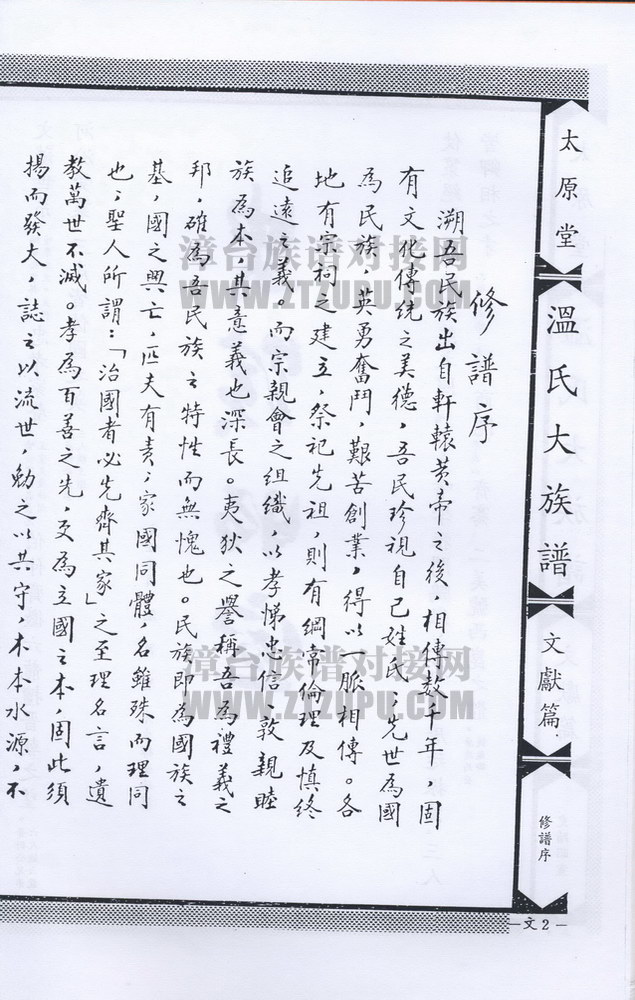 太原堂
溫氏大族譜
文獻篇
修譜序
—文2—
修譜序
溯吾民族出自軒轅黃帝之後，相傳数千年，固
有文化傳統之美德，吾民珍視自己姓氏；先世為國
為民族，英勇奮鬥，艱苦創業，得以一脈相傳。各
地有宗祠之建立，祭祀先祖，則有綱常倫理及慎終
追遠之義。而宗親會之組織，以孝悌忠信、敦親睦
族為本，其意義也深長。夷狄之譽稱吾為禮義之
邦，確為吾民族之特性而無愧也。民族即為國族之
基，國之興亡，匹夫有责；家國同體，名雖殊而理同
也；聖人所謂：「治國者必先齊其家」之至理名言，遺
教萬世不滅。孝為百善之先，交為立國之本，固此須
揚而發大，誌之以流世，勉之以共守，木本水源，不
漳台族谱对接网
WWW.ZTZUPU.COM
漳台族谱对接网
WWW.ZTZUPU.COM